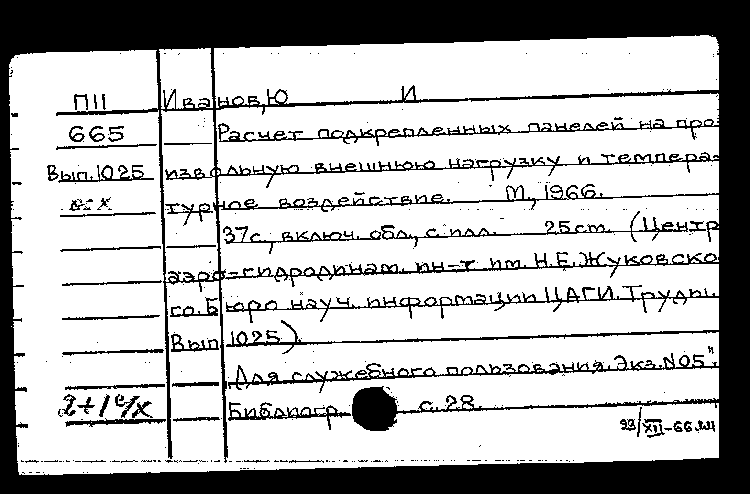 П11 Иванов, Ю И
665 Расчет подкрепленных панелей на про-
Вып. 1025 извольную внешнюю нагрузку и темпера-
турное воздействие. М., 1966.
37с., включ. обл., с илл. 25 см. (Центр
аэро-гидродинам. ин-т им. Н.Е. Жуковско
го. Бюро науч. информации ЦАГИ. Труды.
Вып. 1025).
"Для служебного пользования. Экз. N 05".
2+1 е/х Библиогр. с. 28.
23/XII-66